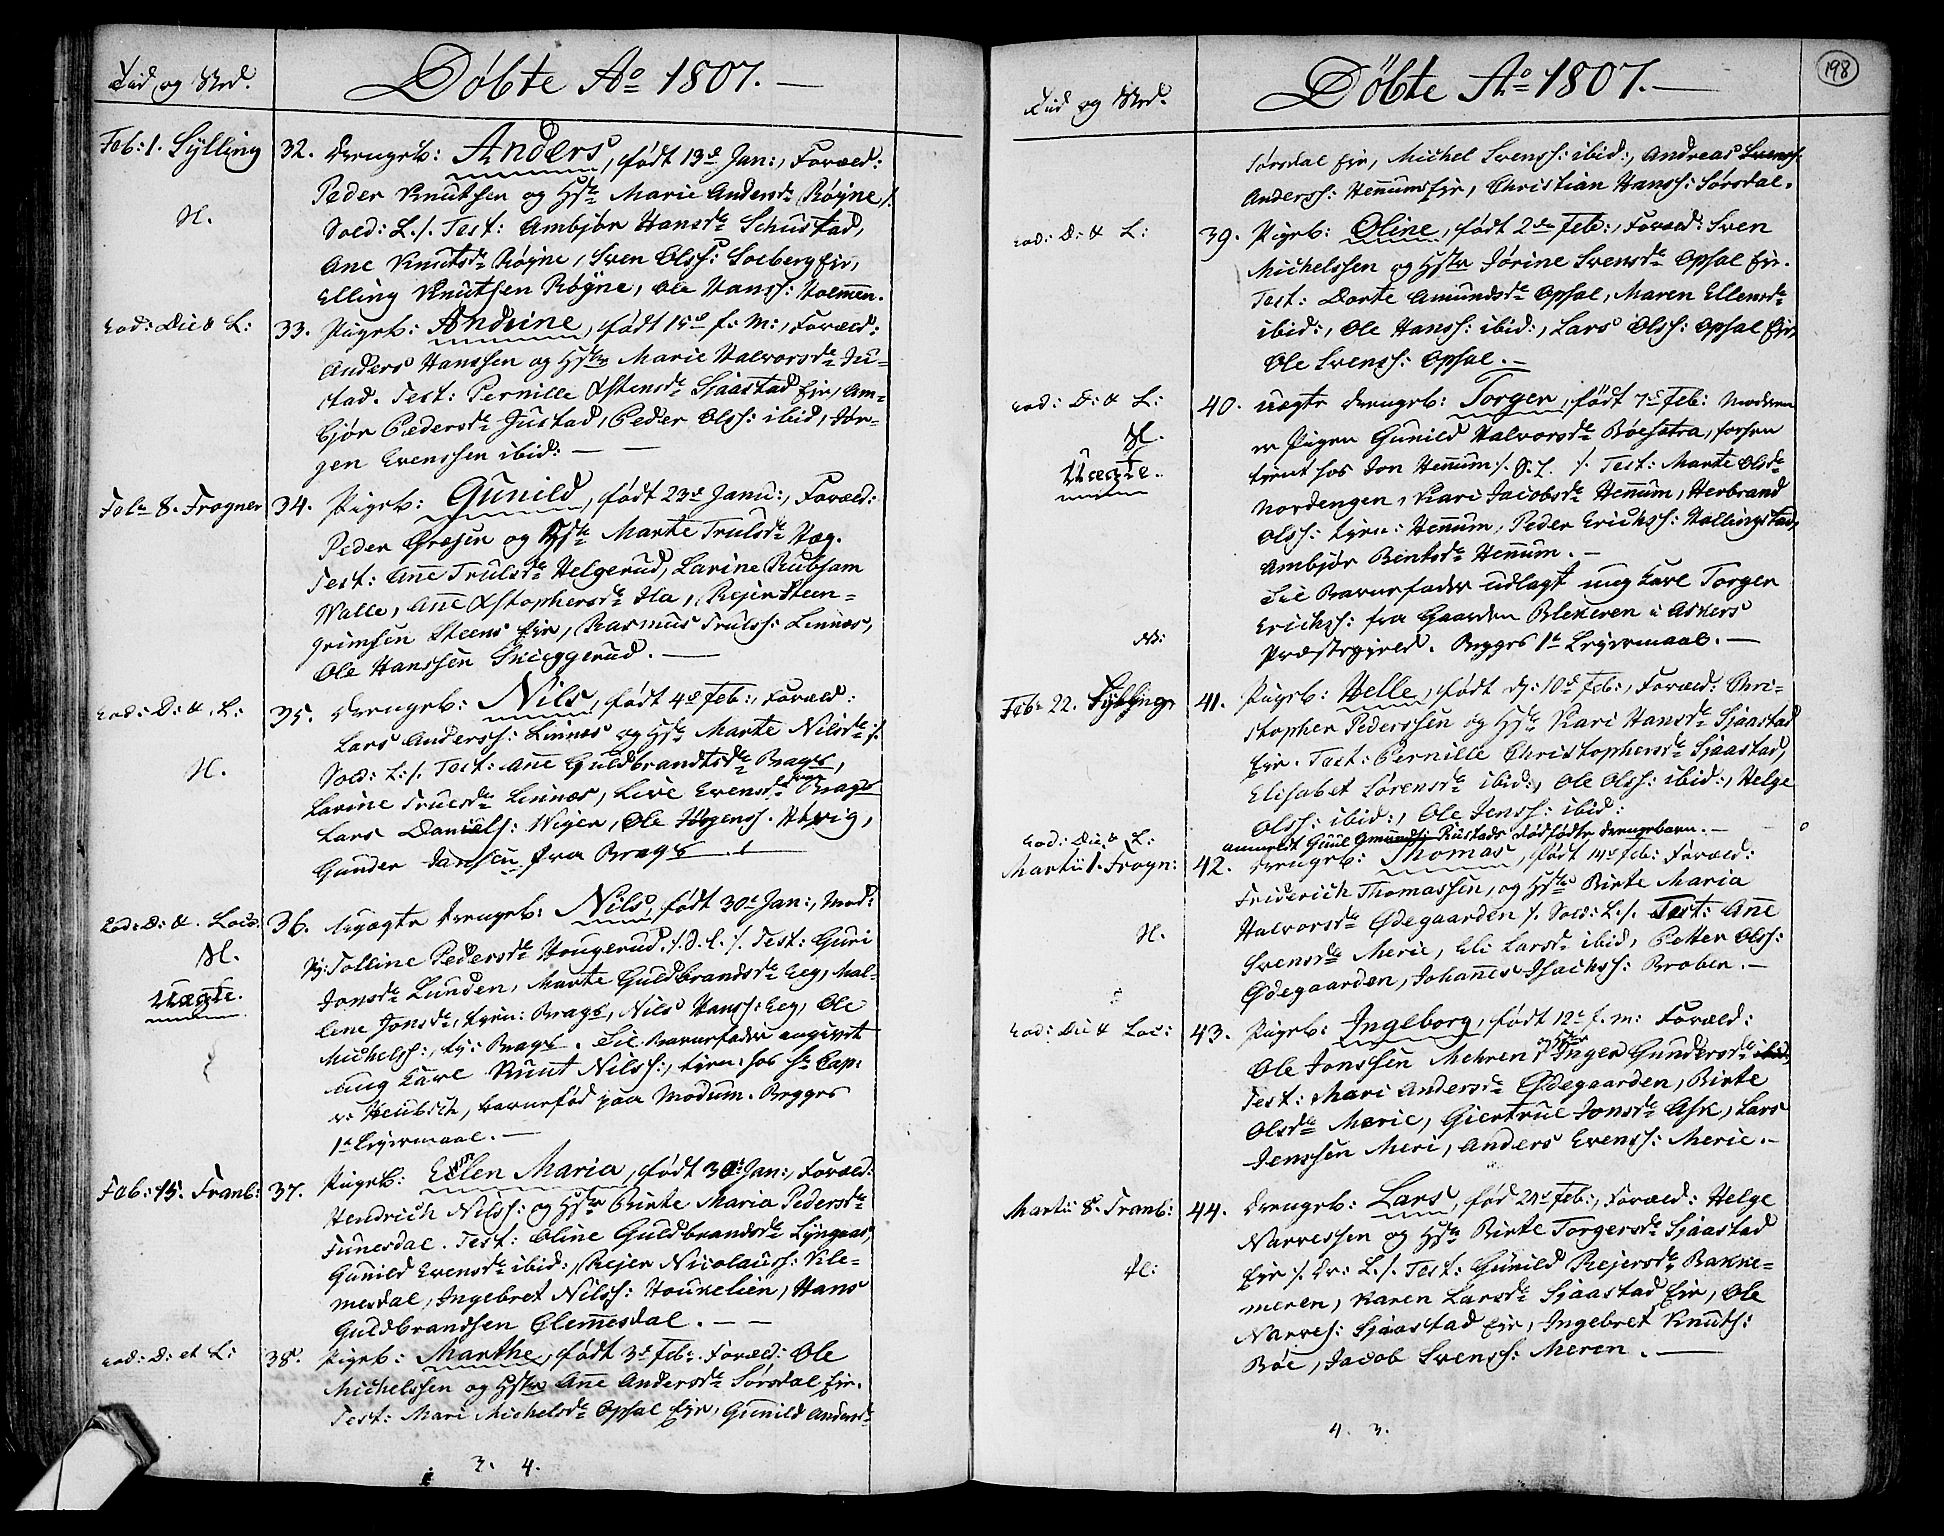 Tid og Sted.
Döbte Ao 1807.
Feb: 1. Sylling 32. Drengeb: Anders, født 13de Jan:, Foræld:
Peder Knutsen og Hste Marie Andersd. Röyne /.
N.
Sold: L./. Test: Ambjør Hansd. Schustad,
Ane Knutsd. Røyne, Sven Olss: Solberg Eje,
Elling Knutsen Röyne, Ole Hanss: Holmen.
eod: Die & L: 33. Pigeb: Andrine, født 15de f: M:, Foræld:
Anders Hanssen og Hstr Marie Halvorsd. Ju=
stad. Test: Pernille Xstensd. Sjaastad Eje, Am=
bjør Pedersd. Justad, Peder Olss: ibid, Jör=
gen Evenssen ibid: —
Feb: 8. Frogner 34. Pigeb: Gunild, født 23de Janu:, Foræld:
Peder Græsen og Hste Marte Trulsd. Hæg.
Test: Ane Trulsd. Helgerud, Larine Rubsam
Walle, Ane Xstophersd. Ila, Rejer Steen=
grimsen Steens Eje, Rasmus Trulss: Linnes,
Ole Hanssen Snieggerud. —
eod: D: &. L: 35. Drengeb: Nils, født 4de Feb:, Foræld:
Lars Anderss: Linnes og Hste Marte Nilsd. /:
N.
Sold: L:/. Test: Ane Guldbrandtsd. Brags,
Larine Truesd. Linnes, Live Evensd. Brags
Lars Daniels: Wiger, Ole Jørgens.
Gunder Jansen fra Brags
eod: D: &. Loco: 36. Uægte Drengeb: Nils, født 30te Jan:, Mod:
N.
P: Tolline Pedersd. Hougerud. /. S. f. /. Test: Guri
Uægte.
Jonsd. Lunden, Marte Guldbrandsd. Eeg, Mal=
lene Jonsd., tjen: Brags, Nils Hanss: Eeg, Ole
Michelss:, tj: Brags. Til Barnefader angivet
ung Karl Knut Nilss:, tjen: hos Hr Cap:
v: Heubsch, barnefød paa Modum. Begges
1te Leyermaal. —
Feb: 15. Tranb: 37. Pigeb: Ellen Maria, født 30: Jan:, Foræld:
Hendrich Nilss: og Hstr Birte Maria Pedersd.
Funesdal. Test: Oline Guldbrandsd. Lyngaas,
Gunild Evensd. ibid:, Rejer Nicolaiss: Kle=
mesdal, Ingebret Nilss: Houkelien, Hans
Guldbrandsen Clemesdal. — —
eod: D: et L: 38. Pigeb: Marthe, født 3de Feb: Foræld: Ole
Michelssen og Hstr Ane Andersd. Sørsdal Eje.
Test: Mari Michelsd. Opsal Eje, Gunild Andersd.
3. 4.
198
Tid og Sted.
Döbte Ao 1807.
Sørsdal Eje, Michel Svenss: ibid:, Andreas Svenss:
Anderss: Hennums Eje, Christian Hanss: Sørsdal.
eod: D: & L: 39. Pigeb: Oline, født 2den Feb:, Foræld: Sven
Michelssen og Hstr Jørine Svensd. Opsal Eje.
Test: Dorte Amundsd. Opsal, Maren Ellensd.
ibid:, Ole Hanss: ibid:, Lars Olss: Opsal Eje,
Ole Svenss: Opsal. —
eod: D: & L: 40. Uægte Drengeb: Torger, født 7de Feb: Moderen
N.
er Pigen Gunild Halvorsd. Böesætra, forhen
Uægte.
tjent hos Jon Hennum /. S. f. /. Test: Marte Olsd.
Nordengen, Kari Jacobsd. Hennum, Herbrand
Olss: tjen: Hennum, Peder Erichss: Hallingstad,
Ambjør Bentsd. Hennum. —
Til Barnefader udlagt ung Karl Torger
Erichss: fra Gaarden Blekeren i Askers
NB:
Præstegjeld. Begges 1te Leyermaal. —
Feb: 22. Sylling 41. Pigeb: Helle, født d: 10de Feb:, Foræld: Chri=
stopher Pederssen og Hste Kari Hansd. Sjaastad
Eje. Test: Pernille Christophersd. Sjaastad,
Elisabet Sørensd. ibid:, Ole Olss: ibid:, Helge
Olss: ibid:, Ole Jenss: ibid:
eod: Die & L: anmeldt Gune Amunds: Rustads dødfødte Drengebarn. —
Martii 1. Frogn: 42. Drengeb: Thomas, født 14de Feb: Foræld:
Friderich Thomassen, og Hstr Birte Maria
N.
Halvorsd. Ødegaarden /. Sold: L./. Test: Ane
Svensd. Merie, Eli Larsd. ibid, Petter Olss:
Ødegaarden, Johanes Isachss: Braben. —
eod: Die & Loc: 43. Pigeb: Ingeborg, født 12te f. m: Foræld:
Ole Jonssen Mehren og Hstr Inger Gundersd. ibid
Test: Mari Andersd. Ødegaarden, Birte
Olsd. Merie, Giertrue Jonsd. Ask, Lars
Jenssen Meri, Anders Evenss: Merie. —
Martii 8. Tranb: 44. Drengeb: Lars, fød 21de Feb:, Foræld: Helge
Narvessen og Hste Birte Torgersd. Sjaastad
N:
Eje /. Dr: L./. Test: Gunild Rejersd. Bakke=
meren, Karen Larsd. Sjaastad Eje, Ole
Narves: Sjaastad Eje, Ingebret Knuts:
Böe, Jacob Svenss: Meren. —
4. 3.